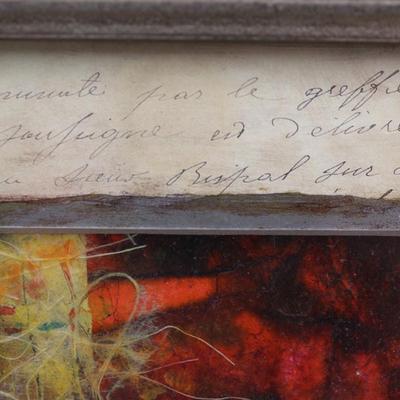 minute par le greffie
soussigné est délivré
au sieur Bispal sur